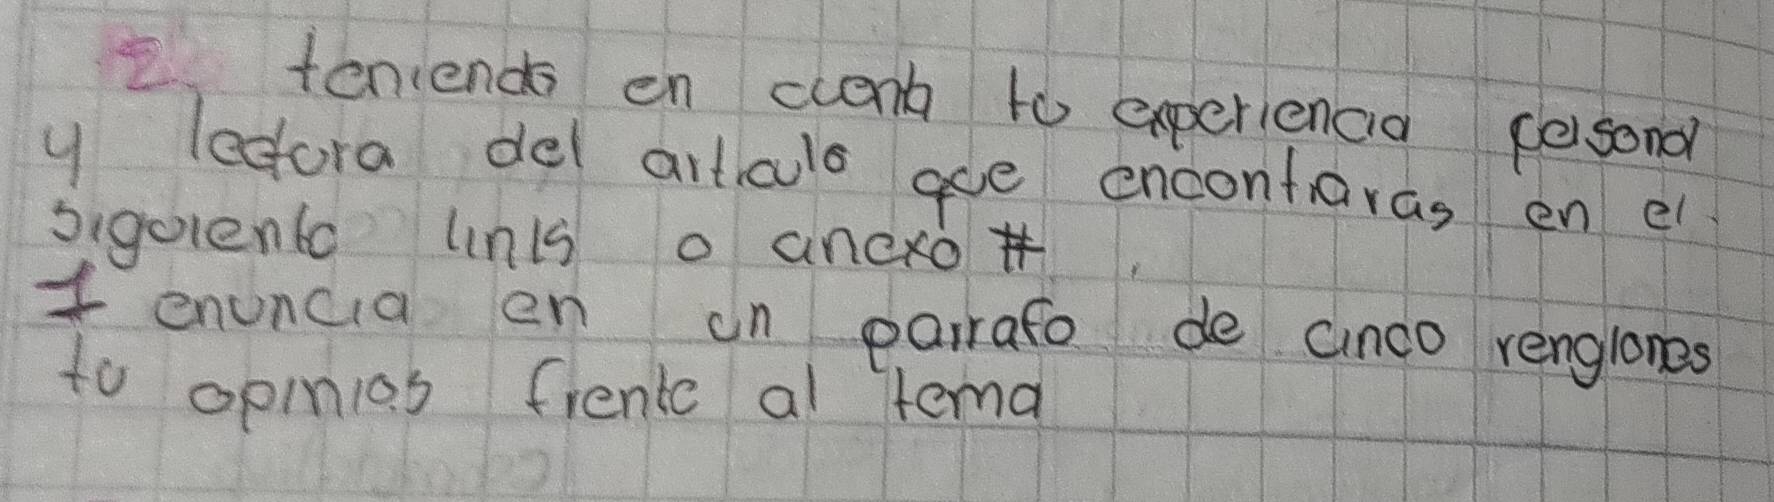 2. teniendo en cuenta tu experiencia pesonal
y lectura del articulo que encontraras en el
siguiente links o anexo #
1 enuncia en un parrafo de cinco renglones
tu opinion frente al tema